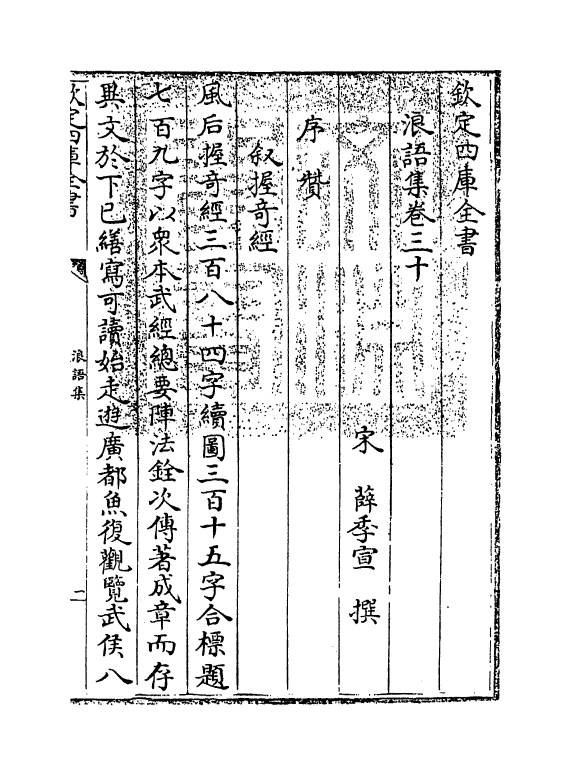 欽定四庫全書
浪語集卷三十
宋 薛季宣 撰
序贊
叙握奇經
風后握奇經三百八十四字續圖三百十五字合標題
七百九字以衆本武經總要陣法銓次傳著成章而存
異文於下已繕寫可讀始走遊廣都魚復觀覽武侯八
欽定四庫全書
浪語集